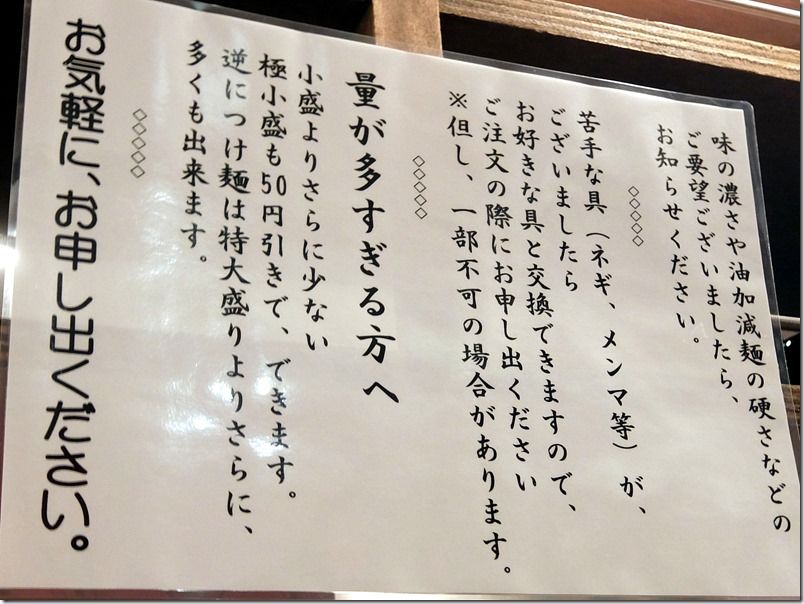 味の濃さや油加減麺の硬さなどの
ご要望ございましたら、
お知らせください。
◇◇◇◇◇
苦手な具（ネギ、メンマ等）が、
ございましたら
お好きな具と交換できますので、
ご注文の際にお申し出ください
※但し、一部不可の場合があります。
◇◇◇◇◇
量が多すぎる方へ
小盛よりさらに少ない
極小盛も50円引きで、できます。
逆につけ麺は特大盛りよりさらに、
多くも出来ます。
◇◇◇◇◇
お気軽に、お申し出ください。